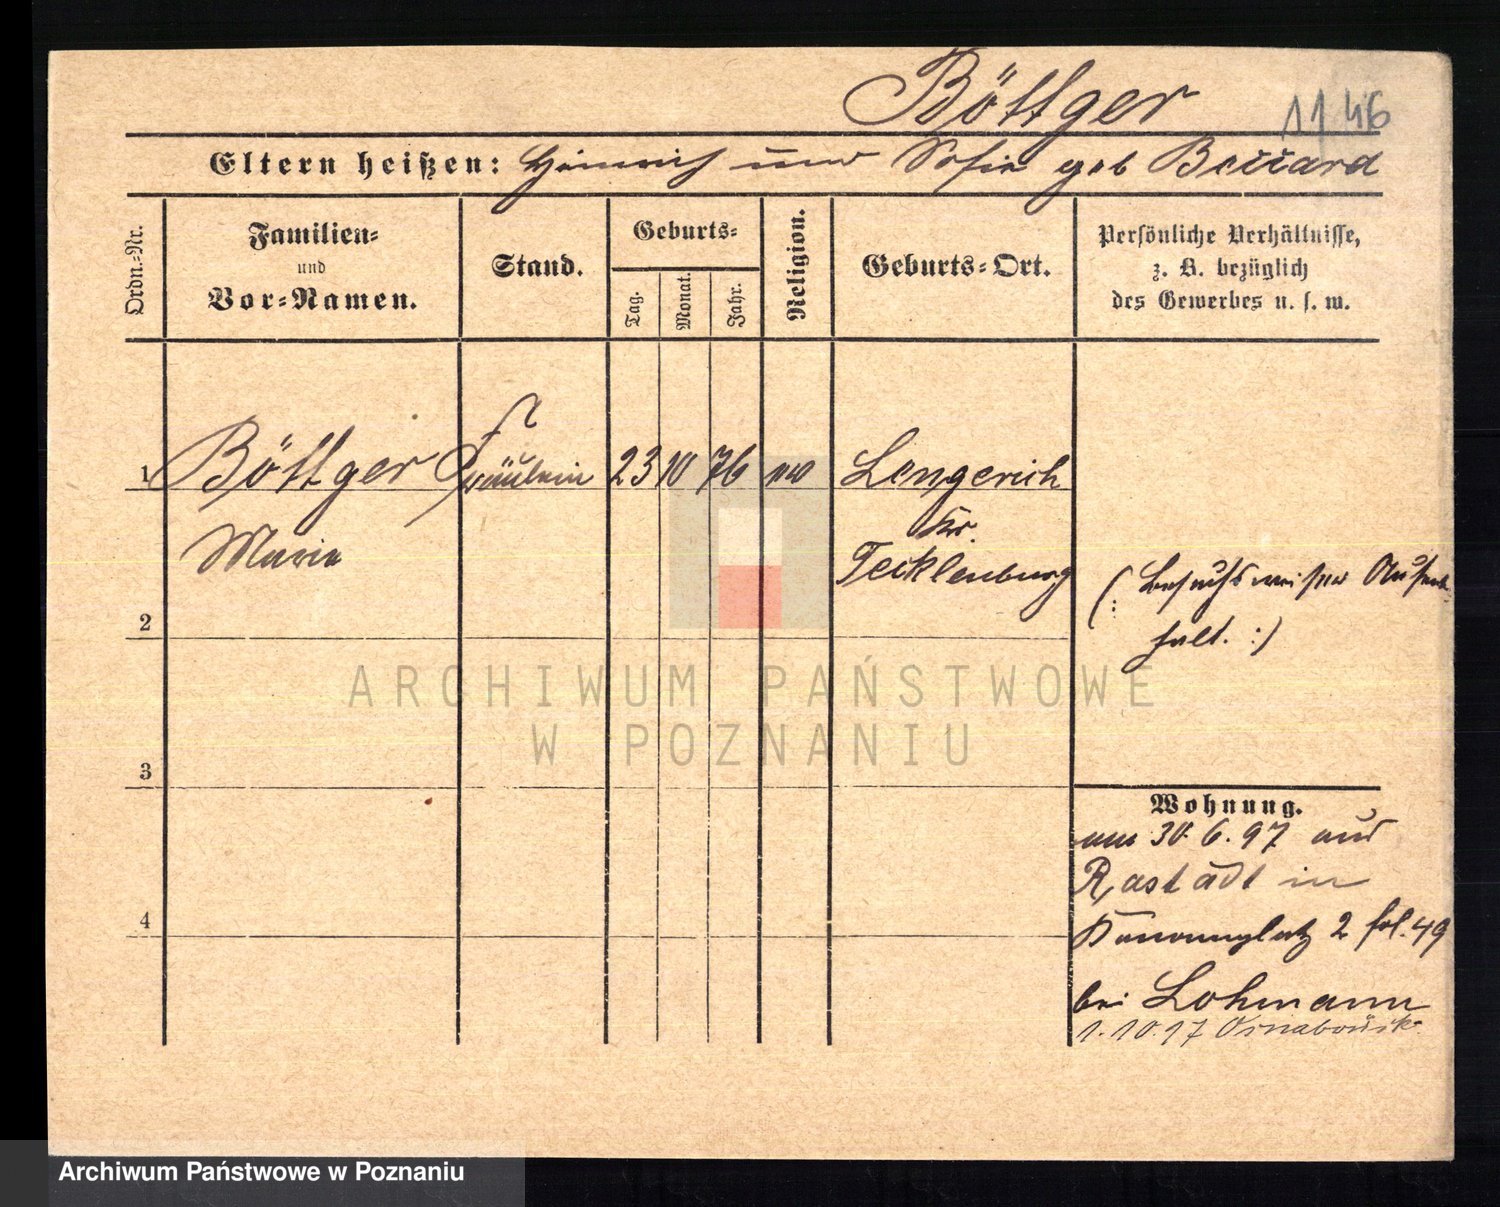 Böttger
1146
Eltern heißen: Heinrich und Sofie geb
Ordn.-Nr.
Familien-
und
Vor-Namen.
Stand.
Geburts-
Tag.
Monat.
Jahr.
Religion.
Geburts-Ort.
Persönliche Verhältnisse,
z. B. bezüglich
des Gewerbes u. s. w.
1 Böttger Fräulein 23 10 76 ev Lengerich
Marie
Kr.
Tecklenburg
(: besuchsweiser Aufent-
halt. :)
2
3
4
Wohnung.
am 30. 6. 97 aus
Rastadt in
Kanonenplatz 2 fol. 49
bei Lohmann
1. 10. 97 Osnabrück
ARCHIWUM PAŃSTWOWE
W POZNANIU
Archiwum Państwowe w Poznaniu